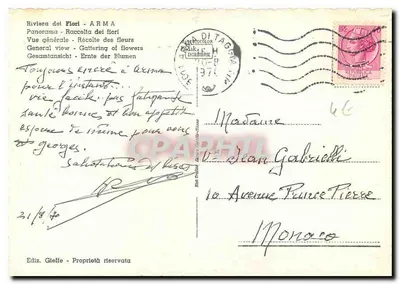 Riviera dei Fiori - ARMA
Panorama - Raccolta dei fiori
Vue générale - Récolte des fleurs
General view - Gattering of flowers
Gesamtansicht - Ernte der Blumen
Toujours encore à Arma
pour l'instant...
vie facile pas fatigante
santé bonnes et bon appetit
espere de même pour vous
georges.
21/8/70
Ediz. Gielle - Proprietà riservata
ARMA DI TAGGIA
4€
Madame
Jean Gabrielli
10 Avenue Prince Pierre
Monaco